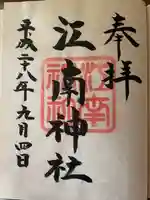 奉拝
江南神社
平成二十八年九月四日